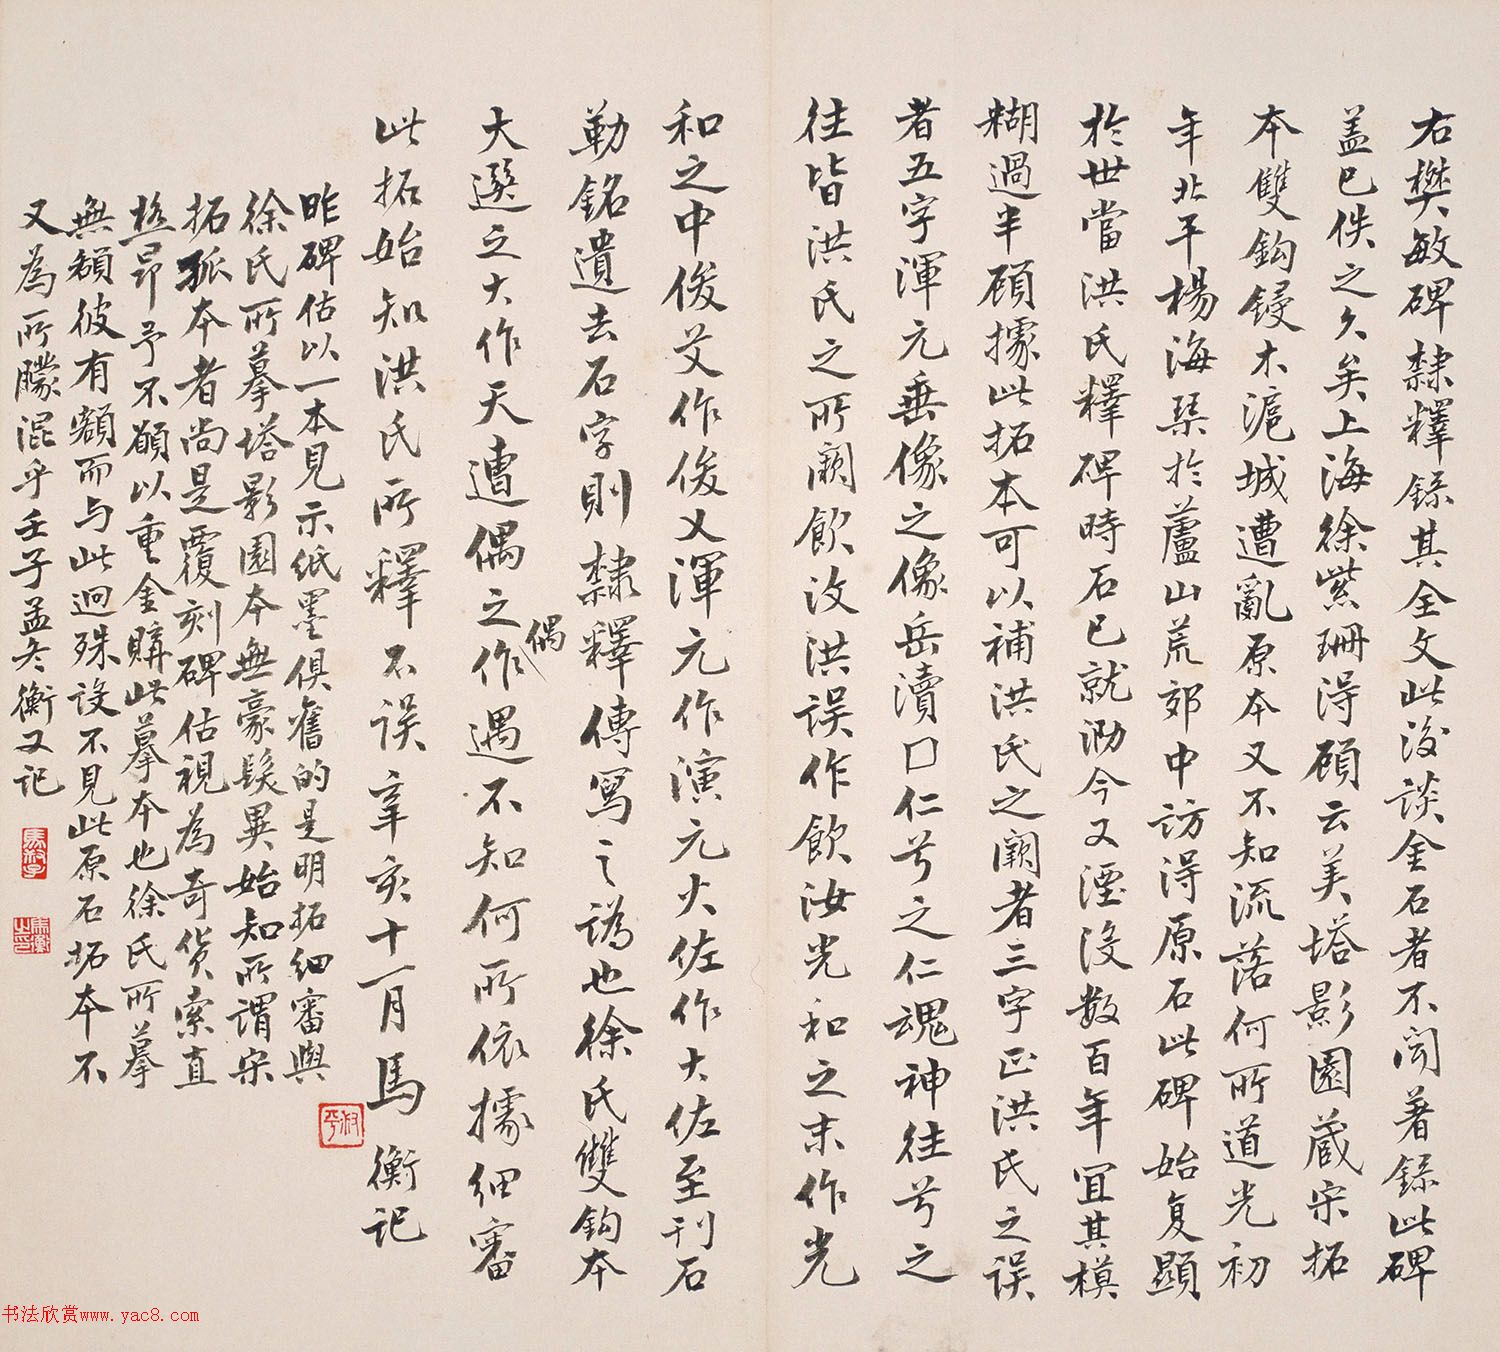 右樊敏碑隸釋錄其全文此後談金石者不聞著錄此碑
盖已佚之久矣上海徐紫珊得顧云美塔影園蔵宋拓
本雙鈎鋟木滬城遭亂原本又不知流落何所道光初
年北平楊海琹於蘆山荒郊中訪得原石此碑始复顯
於世當洪氏釋碑時石已就泐今又湮没數百年宜其模
糊過半顧據此拓本可以補洪氏之闕者三字正洪氏之误
者五字渾元垂像之像岳瀆口仁兮之仁魂神往兮之
往皆洪氏之所闕飲汶洪误作飲汝光和之末作光
和之中俊艾作俊乂渾元作演元火佐作大佐至刊石
勒銘遺去石字則隸釋傳寫之譌也徐氏雙鈎本
大選之大作天遭偶之偶作遇不知何所依據细審
此拓始知洪氏所釋不误辛亥十一月馬衡记
昨碑估以一本見示纸墨俱舊的是明拓细審與
徐氏所摹塔影園本無豪髮異始知所謂宋
拓孤本者尚是覆刻碑估視為奇货索直
極昂予不願以重金購此摹本也徐氏所摹
無額彼有額而与此迥殊设不見此原石拓本不
又為所矇混乎壬子孟冬衡又记
叔平
馬叔平
馬衡之印
书法欣赏www.yac8.com